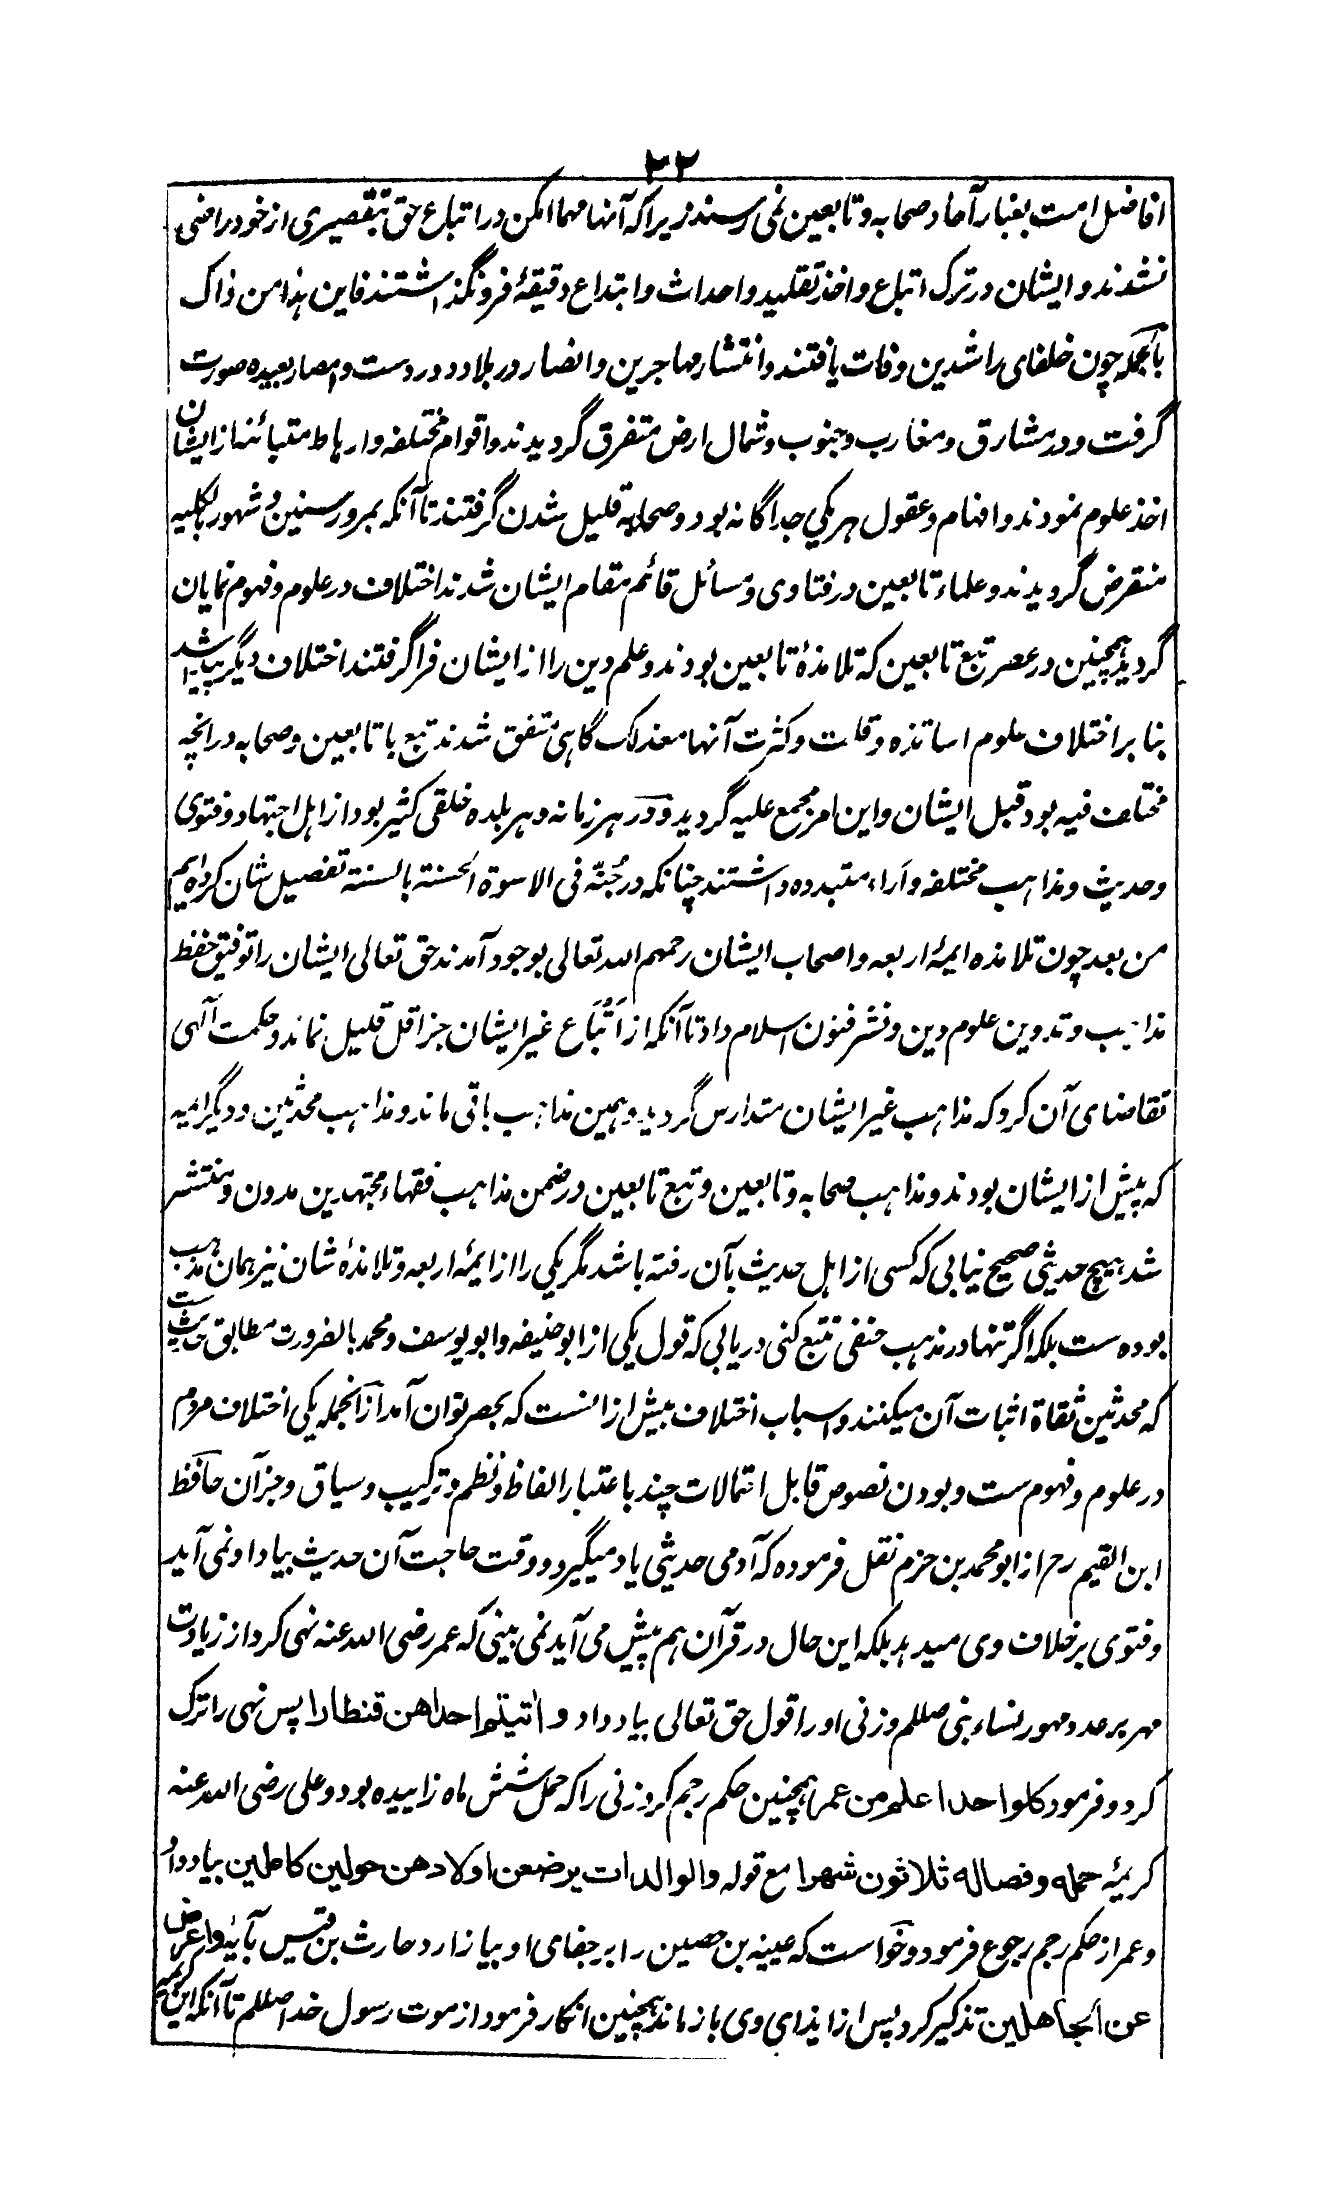 ۲۲
افاضل امت بغبار آحاد صحابه و تابعین نمی رسند زیرا که آنها مهما امکن در اتباع حق بتقصیری از خود راضی
نشدند و ایشان در ترک اتباع و اخذ تقلید و احداث و ابتداع دقیقهٔ فرونگذاشتند فاین هذا من ذاک
بالجمله چون خلفای راشدین وفات یافتند و انتشار مهاجرین و انصار در بلاد دور دست و امصار بعیده صورت
گرفت و در مشارق و مغارب و جنوب و شمال ارض متفرق گردیدند و اقوام مختلفه و ارهاط متبائنه از ایشان
اخذ علوم نمودند و افهام و عقول هر یکی جداگانه بود و صحابه قلیل شدن گرفتند تا آنکه بمرور سنین و شهور بالکلیه
منقرض گردیدند و علماء تابعین در فتاوی و مسائل قائم مقام ایشان شدند اختلاف در علوم و فهوم نمایان
گردید همچنین در عصر تبع تابعین که تلامذهٔ تابعین بودند و علم دین را از ایشان فراگرفتند اختلاف دیگر پیدا شد
بنا بر اختلاف علوم اساتذه و قلت و کثرت آنها معذلک گاهی متفق شدند تبع با تابعین و صحابه در انچه
مختلف فیه بود قبل ایشان و این امر مجمع علیه گردید و در هر زمانه و هر بلده خلقی کثیر بود از اهل اجتهاد و فتوی
و حدیث و مذاهب مختلفه و آراء متبدده داشتند چنانکه در جُنّه فی الاسوة الحسنة بالسنة تفصیل شان کرده ایم
من بعد چون تلامذه ایمهٔ اربعه و اصحاب ایشان رحمهم الله تعالی بوجود آمدند حق تعالی ایشان را توفیق حفظ
مذاهب و تدوین علوم دین و نشر فنون اسلام داد تا آنکه از اَتُبَاع غیر ایشان جز اقل قلیل نماند و حکمت آلهی
تقاضای آن کرد که مذاهب غیر ایشان متدارس گردید و همین مذاهب باقی ماند و مذاهب محدثین و دیگر ایمه
که پیش از ایشان بودند و مذاهب صحابه و تابعین و تبع تابعین در ضمن مذاهب فقهاء مجتهدین مدون و منتشر
شد هیچ حدیثی صحیح نیابی که کسی از اهل حدیث بآن رفته باشد مگر یکی را از ایمهٔ اربعه و تلامذهٔ شان نیز همان مذهب
بوده ست بلکه اگر تنها در مذهب حنفی تتبع کنی دریابی که قول یکی از ابو حنیفه و ابو یوسف و محمد بالضرورت مطابق حدیث ست
که محدثین ثقاة اثبات آن میکنند و اسباب اختلاف بیش از انست که بحصر توان آمد از انجمله یکی اختلاف مردم
در علوم و فهوم ست و بودن نصوص قابل احتمالات چند با عتبار الفاظ و نظم و ترکیب و سیاق و جز آن حافظ
ابن القیم رح از ابو محمد بن حزم نقل فرموده که آدمی حدیثی یاد میگیرد و وقت حاجت آن حدیث بیاد او نمی آید
و فتوی بر خلاف وی میدهد بلکه این حال در قرآن هم پیش می آید نمی بینی که عمر رضی الله عنه نهی کرد از زیادت
مهر بر عدد مهور نساء نبی صللم و زنی او را قول حق تعالی بیاد داد و اٰتیتم احداهن قنطارا پس نهی را ترک
کرد و فرمود کلوا حدا علم من عمر همچنین حکم رجم کرد زنی را که حمل شش ماه زاییده بود و علی رضی الله عنه
کریمهٔ حمله و فصاله ثلاثون شهرا مع قوله و الوالدات یرضعن اولادهن حولین کاملین بیاد داد
و عمر از حکم رجم رجوع فرمود و خواست که عیینه بن حصین را بر جفای او بیازارد حارث بن قیس بآیهٔ و اعرض
عن الجاهلین تذکیر کرد پس از ایذای وی باز ماند همچنین انکار فرمود از موت رسول خدا صللم تا آنکه این کریمه